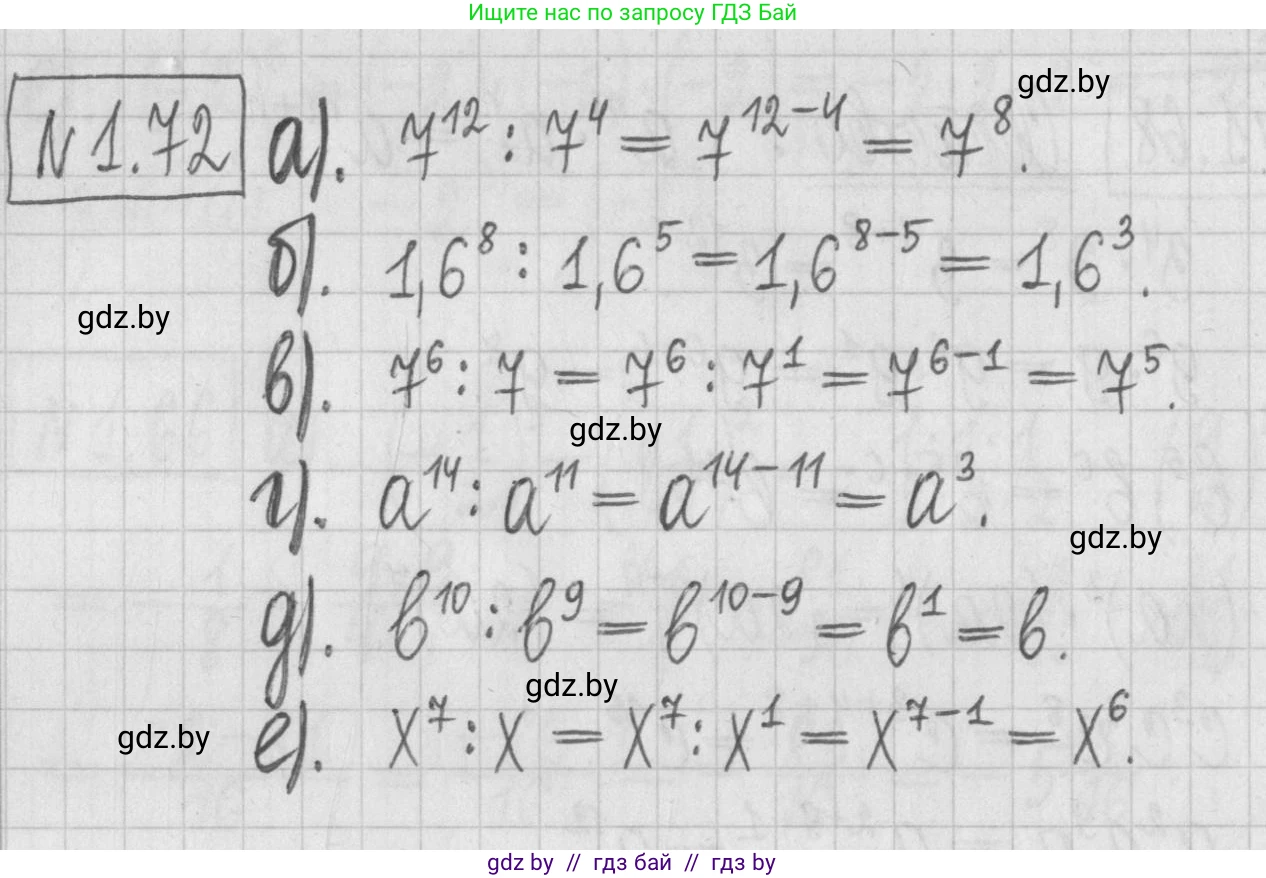 Ищите нас по запросу ГДЗ Бай
gdz.by
N 1.72 а). 7¹² : 7⁴ = 7¹²⁻⁴ = 7⁸.
б). 1,6⁸ : 1,6⁵ = 1,6⁸⁻⁵ = 1,6³.
gdz.by
в). 7⁶ : 7 = 7⁶ : 7¹ = 7⁶⁻¹ = 7⁵.
gdz.by
г). a¹⁴ : a¹¹ = a¹⁴⁻¹¹ = a³.
gdz.by
д). b¹⁰ : b⁹ = b¹⁰⁻⁹ = b¹ = b.
gdz.by
gdz.by
е). x⁷ : x = x⁷ : x¹ = x⁷⁻¹ = x⁶.
gdz by // гдз бай // гдз by